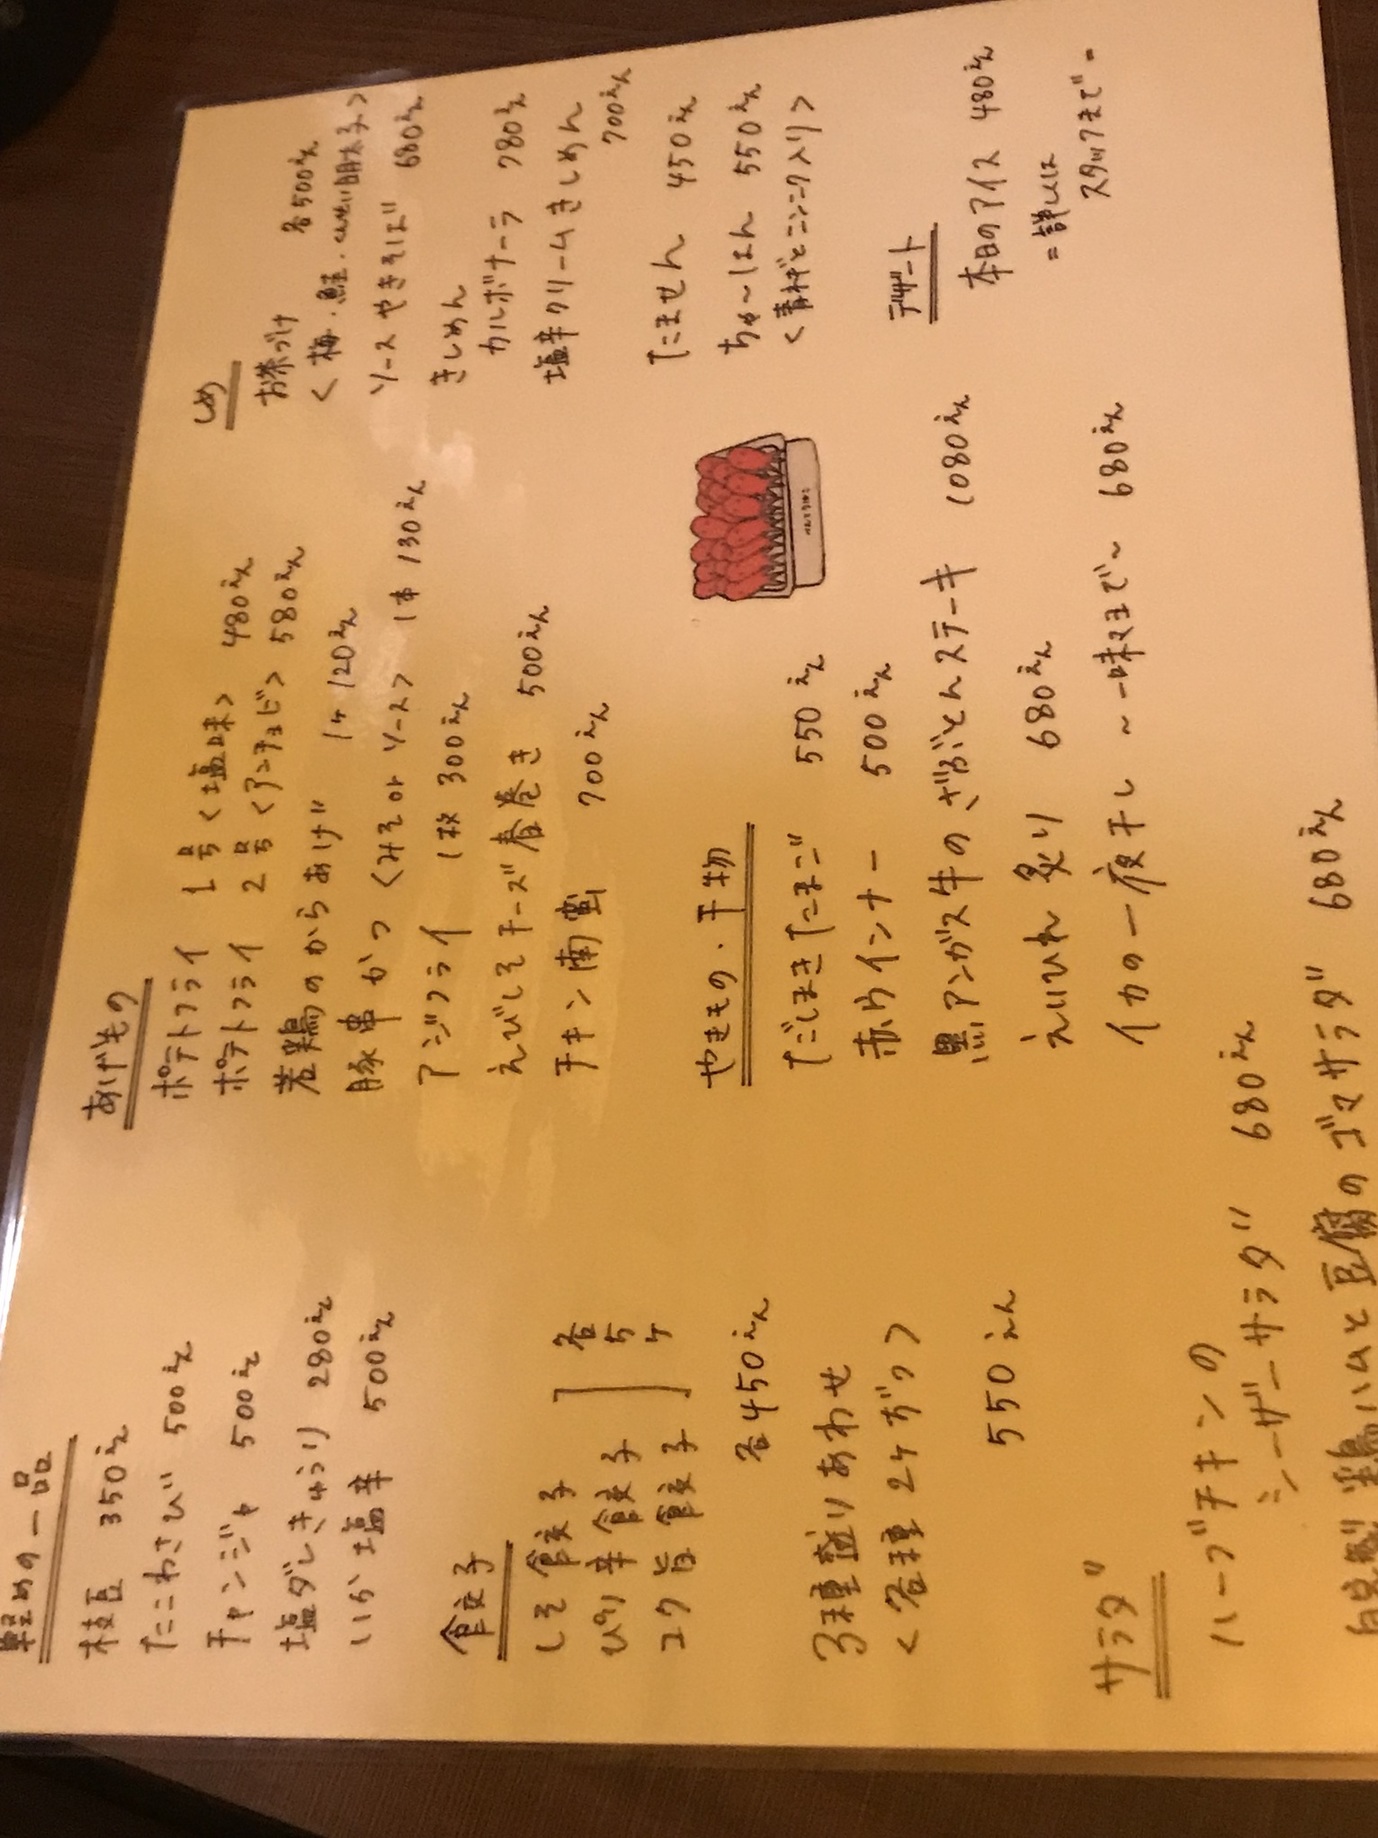 軽めの一品
枝豆 350えん
たこわさび 500えん
チャンジャ 500えん
塩ダレきゅうり 280えん
いか塩辛 500えん
餃子
しそ餃子
ぴり辛餃子
コク旨餃子
各5ケ
各450えん
3種盛りあわせ
<各種2ケずつ>
550えん
サラダ
ハーブチキンの
シーザーサラダ 680えん
自家製鶏ハムと豆腐のゴマサラダ 680えん
あげもの
ポテトフライ 1号<塩味> 480えん
ポテトフライ 2号<アンチョビ> 580えん
若鶏のからあげ 1ケ 120えん
豚串かつ <みそorソース> 1本 130えん
アジフライ 1枚 300えん
えびしそチーズ春巻き 500えん
チキン南蛮 700えん
やきもの・干物
だしまきたまご 550えん
赤ウインナー 500えん
黒アンガス牛のざぶとんステーキ 1080えん
えいひれ炙り 680えん
イカの一夜干し ~一味マヨで~ 680えん
しめ
お茶づけ 各500えん
<梅・鮭・くんせい明太子>
ソースやきそば 680えん
きしめん
カルボナーラ 780えん
塩辛クリームきしめん
700えん
たません 450えん
ちゃ〜はん 550えん
<青ねぎとニンニク入り>
デザート
本日のアイス 480えん
=詳しくは
スタッフまで=